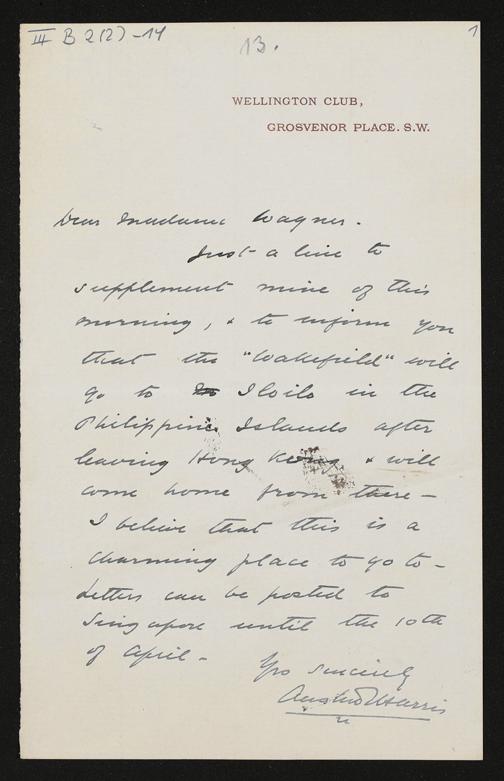 III B 2(2)-14
13.
1
WELLINGTON CLUB,
GROSVENOR PLACE. S.W.
Dear Madame Wagner.
Just a line to
supplement mine of this
morning, & to inform you
that the "Wakefield" will
go to Iloilo in the
Philippine Islands after
leaving Hong Kong & will
come home from there –
I believe that this is a
charming place to go to –
Letters can be posted to
Singapore until the 10th
of April –
Yrs sincerely
Harris